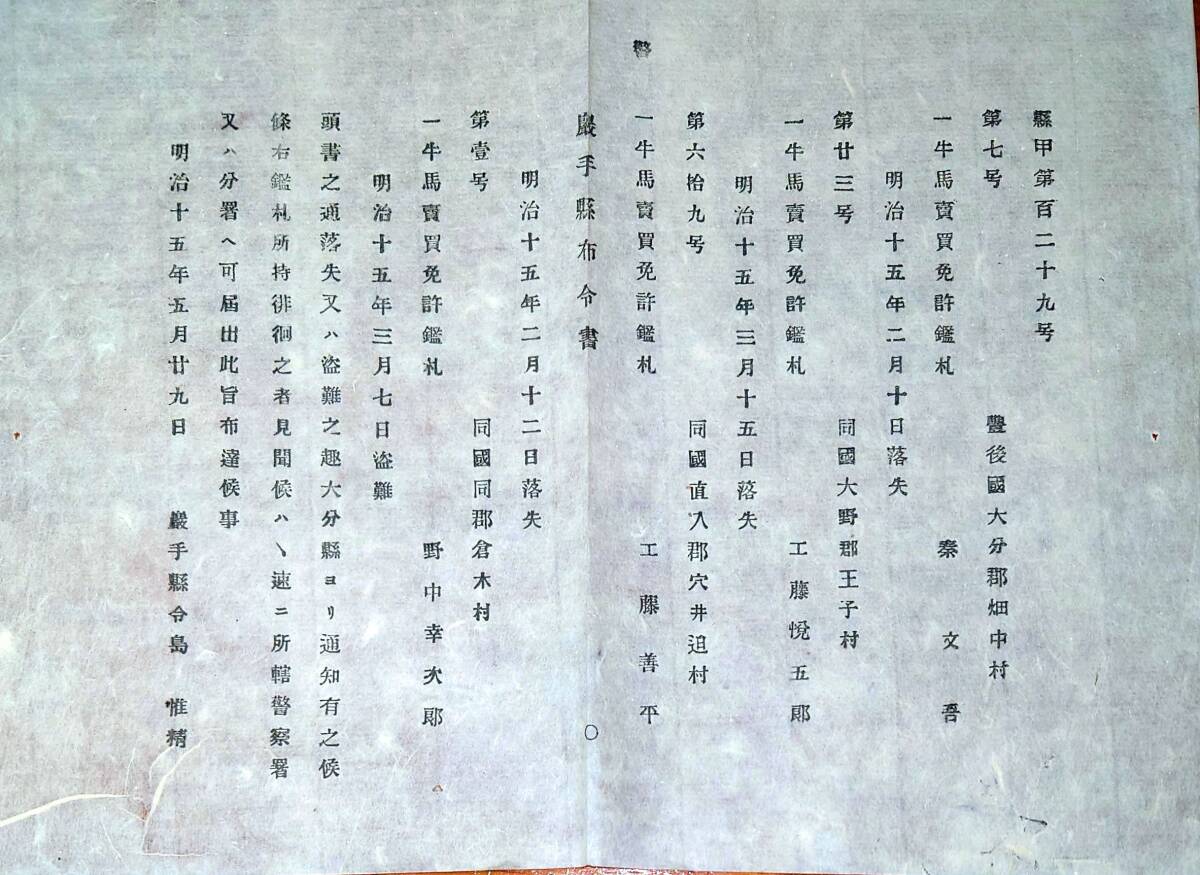 縣甲第百二十九号
第七号　豐後國大分郡畑中村
一牛馬賣買免許鑑札　秦文吾
明治十五年二月十日落失
第廿三号　同國大野郡王子村
一牛馬賣買免許鑑札　工藤悅五郎
明治十五年三月十五日落失
第六拾九号　同國直入郡穴井迫村
一牛馬賣買免許鑑札　工藤善平
警
巖手縣布令書　〇
明治十五年二月十二日落失
第壹号　同國同郡倉木村
一牛馬賣買免許鑑札　野中幸次郎
明治十五年三月七日盜難
頭書之通落失又ハ盜難之趣大分縣ヨリ通知有之候
條右鑑札所持徘徊之者見聞候ハヽ速ニ所轄警察署
又ハ分署ヘ可屆出此旨布達候事
明治十五年五月廿九日　巖手縣令島惟精